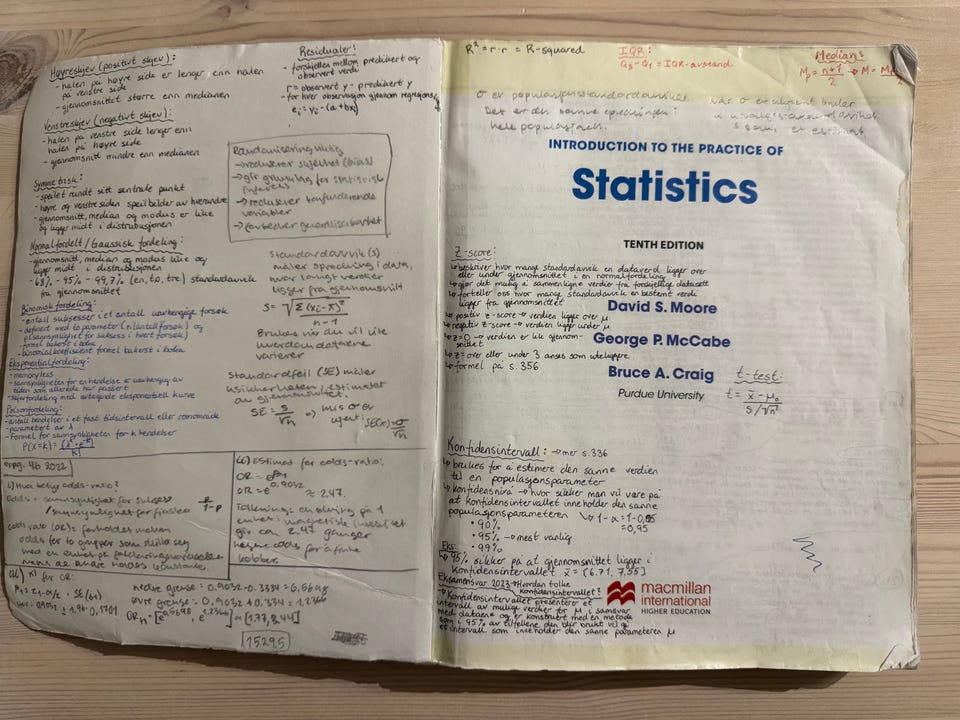 Høyreskjev (positivt skjev):
- halen på høyre side er lenger enn halen
på venstre side
- gjennomsnittet større enn medianen
Venstreskjev (negativt skjev):
- halen på venstre side lenger enn
halen på høyre side
- gjennomsnitt mindre enn medianen
Symmetrisk:
- speilet rundt sitt sentrale punkt
- høyre og venstre siden speilbilder av hverandre
- gjennomsnitt, median og modus er like
og ligger midt i distribusjonen
Normalfordelt/Gaussisk fordeling:
- gjennomsnitt, median og modus like og
ligger midt i distribusjonen
- 68% - 95% - 99,7% (en, to, tre) standardavvik
fra gjennomsnittet
Binomisk fordeling:
- antall suksesser i et antall uavhengige forsøk
- definert med to parameter (n (antall forsøk) og
p (sannsynlighet for suksess i hvert forsøk)
- formel bakerst i boka
- binomialkoeffisient formel bakerst i boka
Eksponentialfordeling:
- memoryless
- sannsynligheten for en hendelse er uavhengig av
tiden som allerede har passert
- fordeling med avtagende eksponentiell kurve
Poissonfordeling:
- antall hendelser i et fast tidsintervall eller romområde
- parametert av λ
- Formel for sannsynligheten for k hendelser
P(X=k) = (λ^k · e^-λ) / k!
Residualer:
- forskjellen mellom predikert og
observert verdi
r = observert y - predikert y
- for hver observasjon gjennom regresjons
e_i = y_i - (a+bx_i)
Randomisering viktig
→ reduserer skjevhet (bias)
→ gir grunnlag for statistisk
inferens
→ reduserer konfunderende
variabler
→ forbedrer generaliserbarhet
Standardavvik (s)
måler spredning i data,
hvor langt verdier
ligger fra gjennomsnitt
s = √(Σ(x_i - x̄)² / n-1)
Brukes når du vil vite
hvordan dataene
varierer
Standardfeil (SE) måler
usikkerheten i estimatet
av gjennomsnittet.
SE = s/√n ⇒ hvis σ er
ukjent: SE(x̄) = σ/√n
oppg. 4b 2022
i) Hva betyr odds-ratio?
Odds = sannsynlighet for suksess
/ sannsynlighet for fiasko p/1-p
odds rate (OR): forholdet mellom
odds for to grupper som skiller seg
med en enhet
mens de andre holdes konstante.
ii) Estimat for odds-ratio:
OR = e^β1
OR = e^0,9032 ≈ 2.47.
Tolkning: en økning på 1
enhet i
gir ca. 2.47 ganger
høyere odds for å finne
kobber.
KI for OR:
nedre grense = 0.9032 - 0.3334 = 0,5698
øvre grense = 0.9032 + 0.334 = 1,2366
OR = [e^0,5698, e^1,2366] = [1.77, 3,44]
15295
R² = r·r = R-squared
IQR:
Q3 - Q1 = IQR-avstand
Median:
M_p = n+1/2
σ er populasjonsstandardavviket.
Det er den sanne spredningen i
hele populasjonen.
når σ er ukjent bruker
vi utvalgsstandardavviket
s som et estimat.
INTRODUCTION TO THE PRACTICE OF
Statistics
TENTH EDITION
David S. Moore
George P. McCabe
Bruce A. Craig
Purdue University
Z-score:
↳ beskriver hvor mange standardavvik en dataverdi ligger over
eller under gjennomsnittet i en normalfordeling
↳ gjør det mulig å sammenligne verdier fra forskjellige datasett
↳ forteller oss hvor mange standardavvik en bestemt verdi
ligger fra gjennomsnittet
↳ positiv z-score → verdien ligger over μ
↳ negativ z-score → verdien ligger under μ
↳ z=0 → verdien er lik gjennom-
snittet
↳ z = over eller under 3 anses som uteliggere
↳ formel på s. 356
t-test:
t = x̄ - μ₀ / s/√n
Konfidensintervall: → mer s. 336
↳ brukes for å estimere den sanne verdien
til en populasjonsparameter
↳ konfidensnivå → hvor sikker man vil være på
at konfidensintervallet inneholder den sanne
populasjonsparameteren
↳ 1-α = 1-0,05
= 0,95
• 90%
• 95% → mest vanlig
• 99%
Eks:
↳ 95% sikker på at gjennomsnittet ligger i
konfidensintervallet x̄ = (6.71, 7.55)
Eksamensvar 2023 → Hvordan tolke
konfidensintervallet?
↳ Konfidensintervallet presenterer et
intervall av mulige verdier for μ i samsvar
med dataene og er konstruert med en metode
som i 95% av tilfellene den blir brukt vil gi
et intervall som inneholder den sanne parameteren μ
macmillan
international
HIGHER EDUCATION